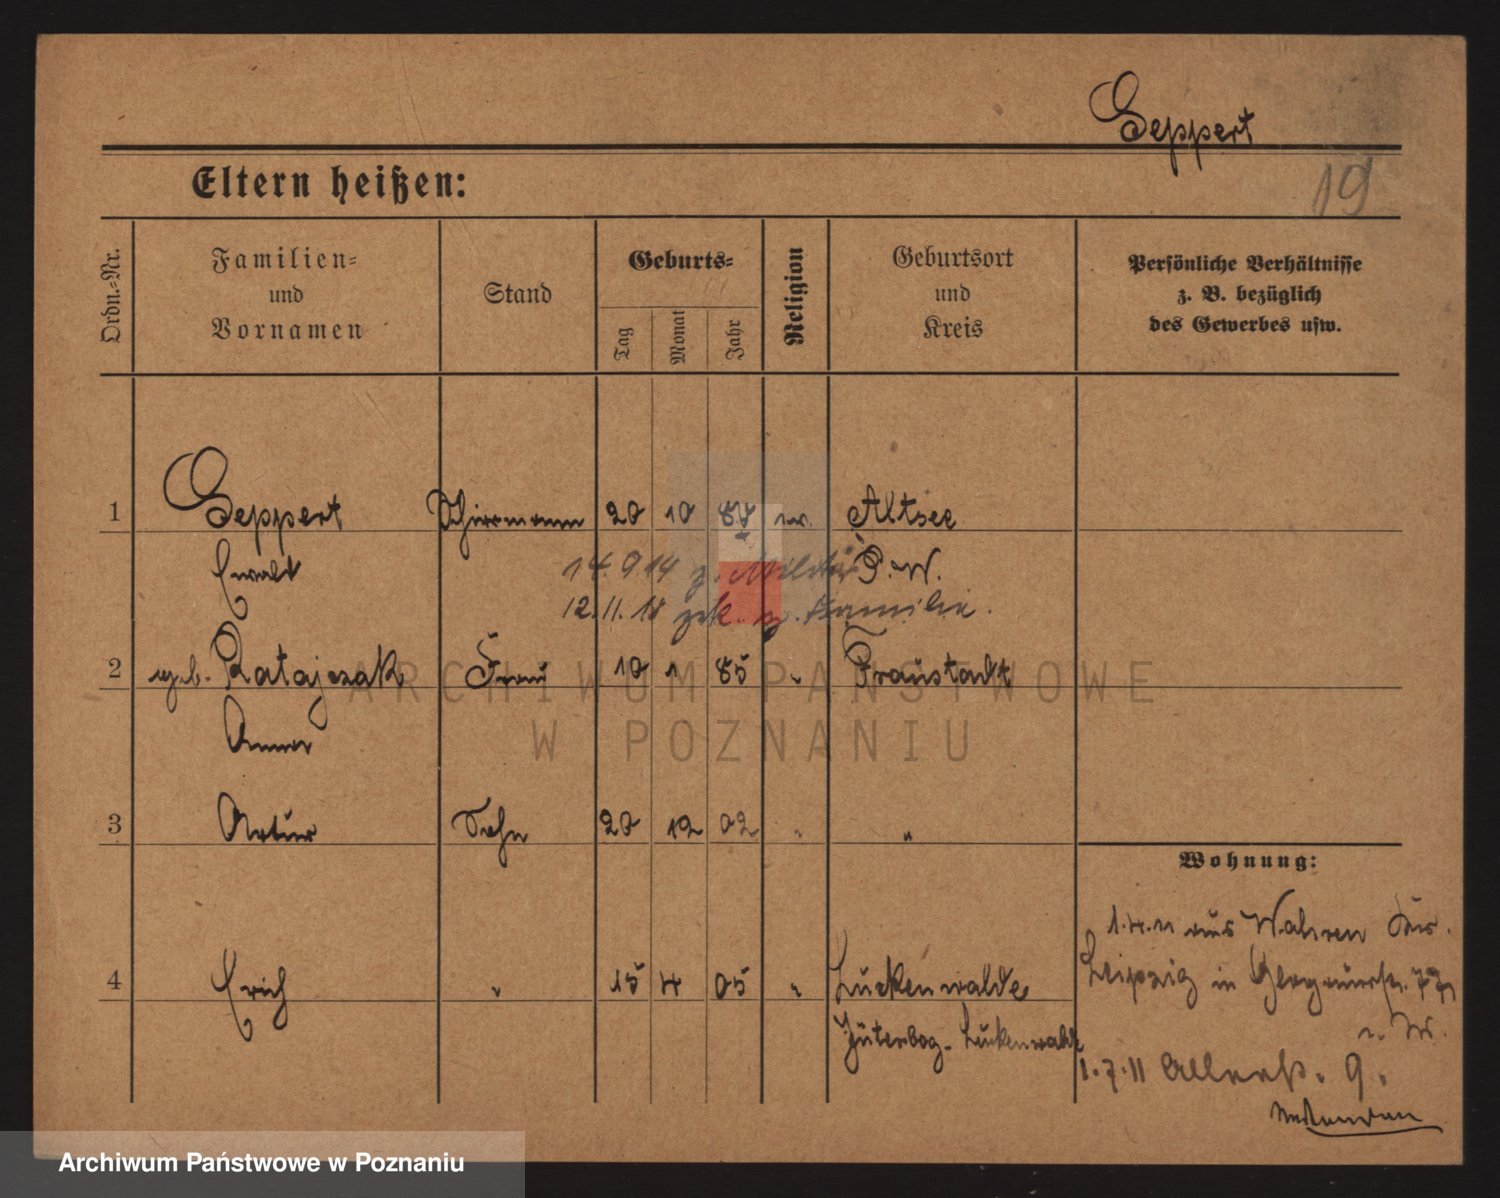 Seppert
19
Eltern heißen:
Ordn.-Nr.
Familien-
und
Vornamen
Stand
Geburts-
Tag
Monat
Jahr
Religion
Geburtsort
und
Kreis
Persönliche Verhältnisse
z. B. bezüglich
des Gewerbes usw.
1 Seppert 20 10 Altsee
Ewald 14.9.14 z. Militär P. W.
12.11.18 zrk. Familie.
2 geb. Ratajczak Frau 10 1 85 " Fraustadt
Anna
3 Artur Sohn 20 12 02 " "
Wohnung:
1.4.11 aus Wahren Kr.
4 Erich " 15 4 05 " Luckenwalde
Leipzig in
Jüterbog-Luckenwalde
1.7.11 9.
ARCHIWUM PAŃSTWOWE
W POZNANIU
Archiwum Państwowe w Poznaniu